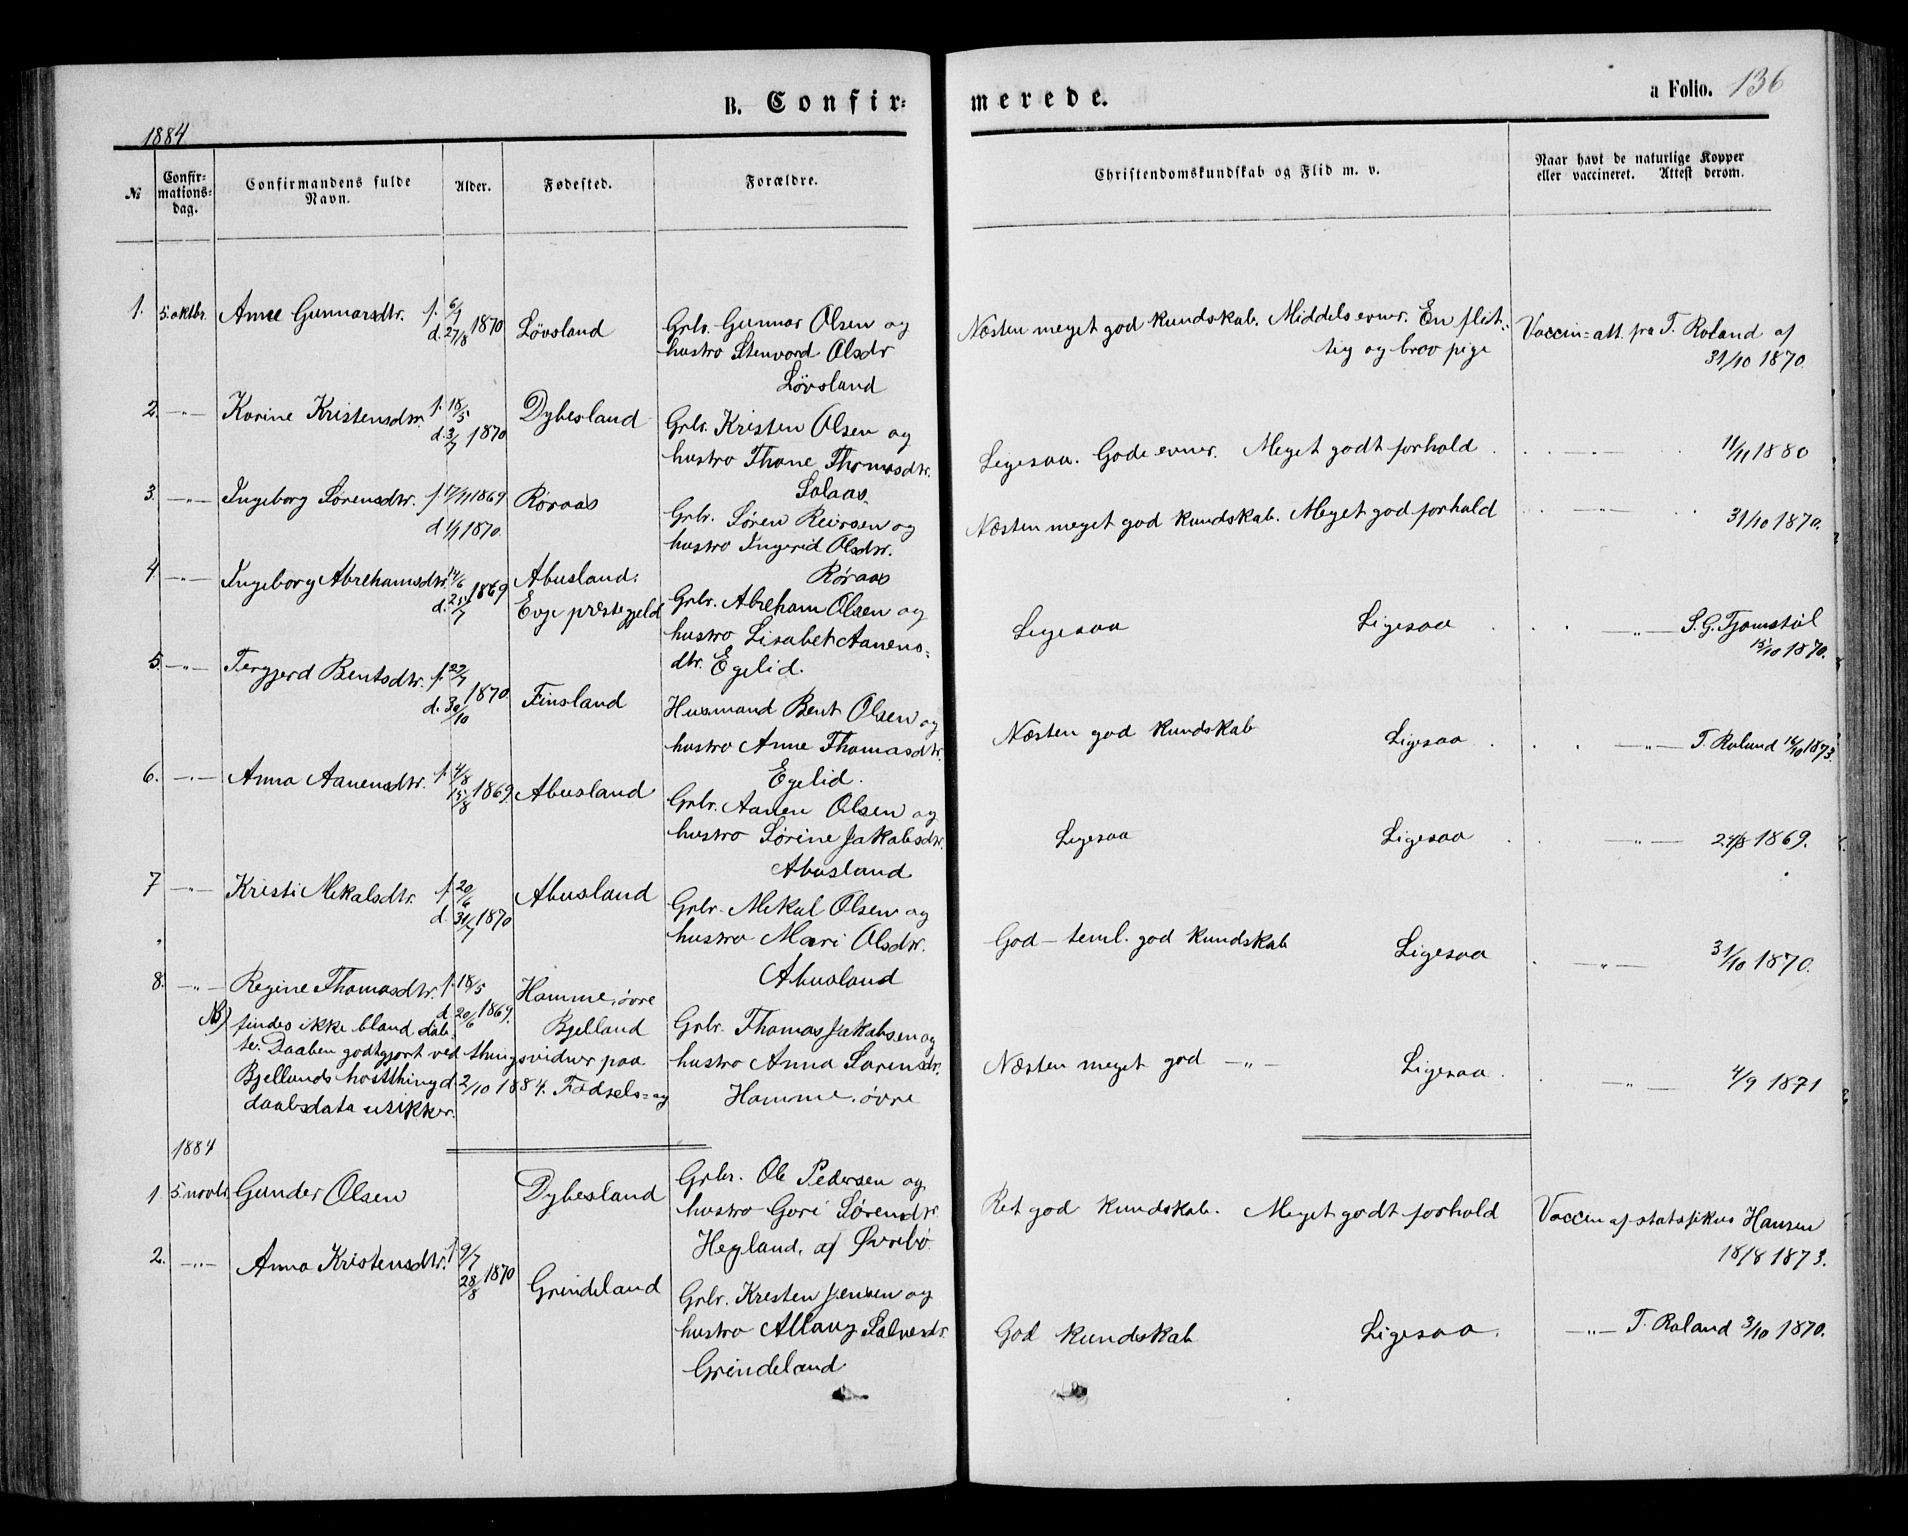 B. Confir=
merede.
a Folio. 136
1884
№
Confir-
mations-
dag.
Confirmandens fulde
Navn.
Alder.
Fødested.
Forældre.
Christendomskundskab og Flid m. v.
Naar havt de naturlige Kopper
eller vaccineret. Attest derom.
1. 5. oktbr. Anne Gunnarsdtr. f. 6/7
d. 27/8 1870 Løvsland
Grbr. Gunnar Olsen og
hustro Stenvord Olsdr
Løvsland
Næsten meget god kundskab. Middels evner. En flit-
tig og brav pige
Vaccin=att. fra T. Roland af
31/10 1870.
2. —„— Karine Kristensdtr. f. 18/5
d. 3/7 1870 Dybesland
Grbr. Kristen Olsen og
hustro Thone Thomasdtr.
Solaas
Ligesaa. Gode evner. Meget godt forhold
—„— 11/11 1880
3. —„— Ingeborg Sørensdtr. f. 17/11 1869
d. 1/1 1870. Røraas
Grbr. Søren Reiersen og
hustro Ingerid Olsdtr.
Røraas
Næsten meget god kundskab. Meget god forhold
—„— 31/10 1870.
4 —„— Ingeborg Abrehamsdtr. 14/6
d. 25/7 1869
Abusland:
Evje præstegjeld
Grbr. Abreham Olsen og
hustro Lisabet Aanens-
dtr. Egelid.
Ligesaa Ligesaa
—„— S. G. Tjomstøl
15/10 1870.
5. —„— Tergjerd Bentsdtr. f. 22/7
d. 30/10 1870. Finsland
Husmand Bent Olsen og
hustro Anne Thomasdtr.
Egelid.
Næsten god kundskab Ligesaa
—„— T. Roland 14/10 1873.
6. —„— Anna Aanensdtr. f. 4/8
15/8 1869. Abusland
Grbr. Aanen Olsen og
hustro Sørine Jakobsdtr.
Abusland
Ligesaa Ligesaa
—„— 24/8 1869.
7 —„— Kristi Mikalsdtr. f. 20/6
d. 31/7 1870 Abusland
Grbr. Mikal Olsen og
hustro Mari Olsdtr.
Abusland
God – teml. god kundskab Ligesaa
—„— 31/10 1870.
8. —„— Regine Thomasdtr. f. 18/5
d. 20/6 1869.
Homme, øvre
Bjelland
Grbr. Thomas Jakobsen og
hustro Anna Sørensdtr.
Homme, øvre
Næsten meget god —„— Ligesaa.
—„— 4/9 1871
NB) findes ikke bland døb-
te. Daaben godtgjort ved thingsvidner paa
Bjellands høstthing d. 2/10 1884. Fødsels= og
daabsdata usikker.
1884
1 5. novbr. Gunder Olsen Dybesland
Grbr. Ole Pedersen og
hustro Gøri Sørensdtr
Hegland, af Øvrebø
Ret god kundskab. Meget godt forhold
Vaccin af statsfikus Hansen
18/8 1873.
2. —„— Anna Kristensdtr. f 9/7
28/8 1870 Grindeland
Grbr. Kresten Jensen og
hustro Allaug Salvesdr.
Grindeland
God kundskab Ligesaa.
—„— T. Roland 3/10 1870.